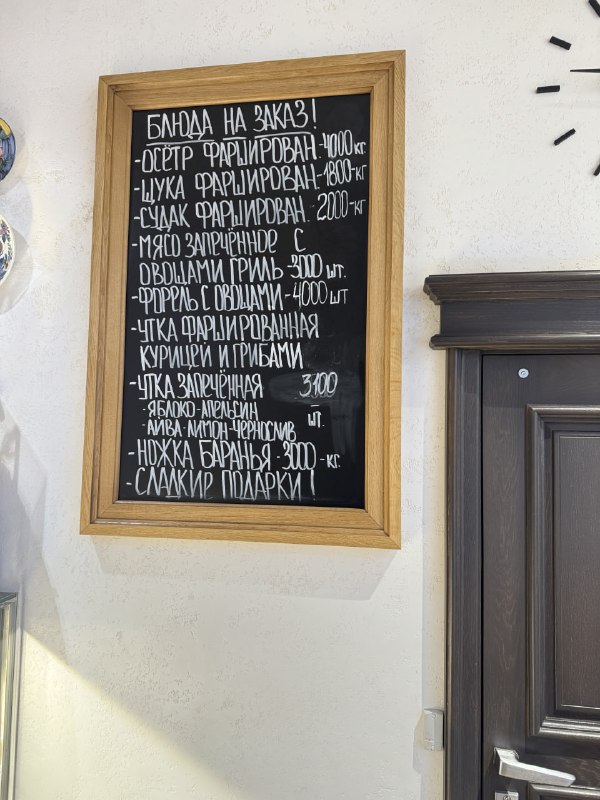 БЛЮДА НА ЗАКАЗ!
-ОСЁТР ФАРШИРОВАН.-4000кг.
-ЩУКА ФАРШИРОВАН.-1800-кг
-СУДАК ФАРШИРОВАН. 2000-кг
-МЯСО ЗАПЕЧЁННОЕ С
ОВОЩАМИ ГРИЛЬ-3000 шт.
-ФОРЕЛЬ С ОВОЩАМИ-4000 шт
-УТКА ФАРШИРОВАННАЯ
КУРИЦЕЙ И ГРИБАМИ
-УТКА ЗАПЕЧЁННАЯ 3100
-ЯБЛОКО-АПЕЛЬСИН шт.
-АЙВА-ЛИМОН-ЧЕРНОСЛИВ
-НОЖКА БАРАНЬЯ-3000-кг.
-СЛАДКИЕ ПОДАРКИ!